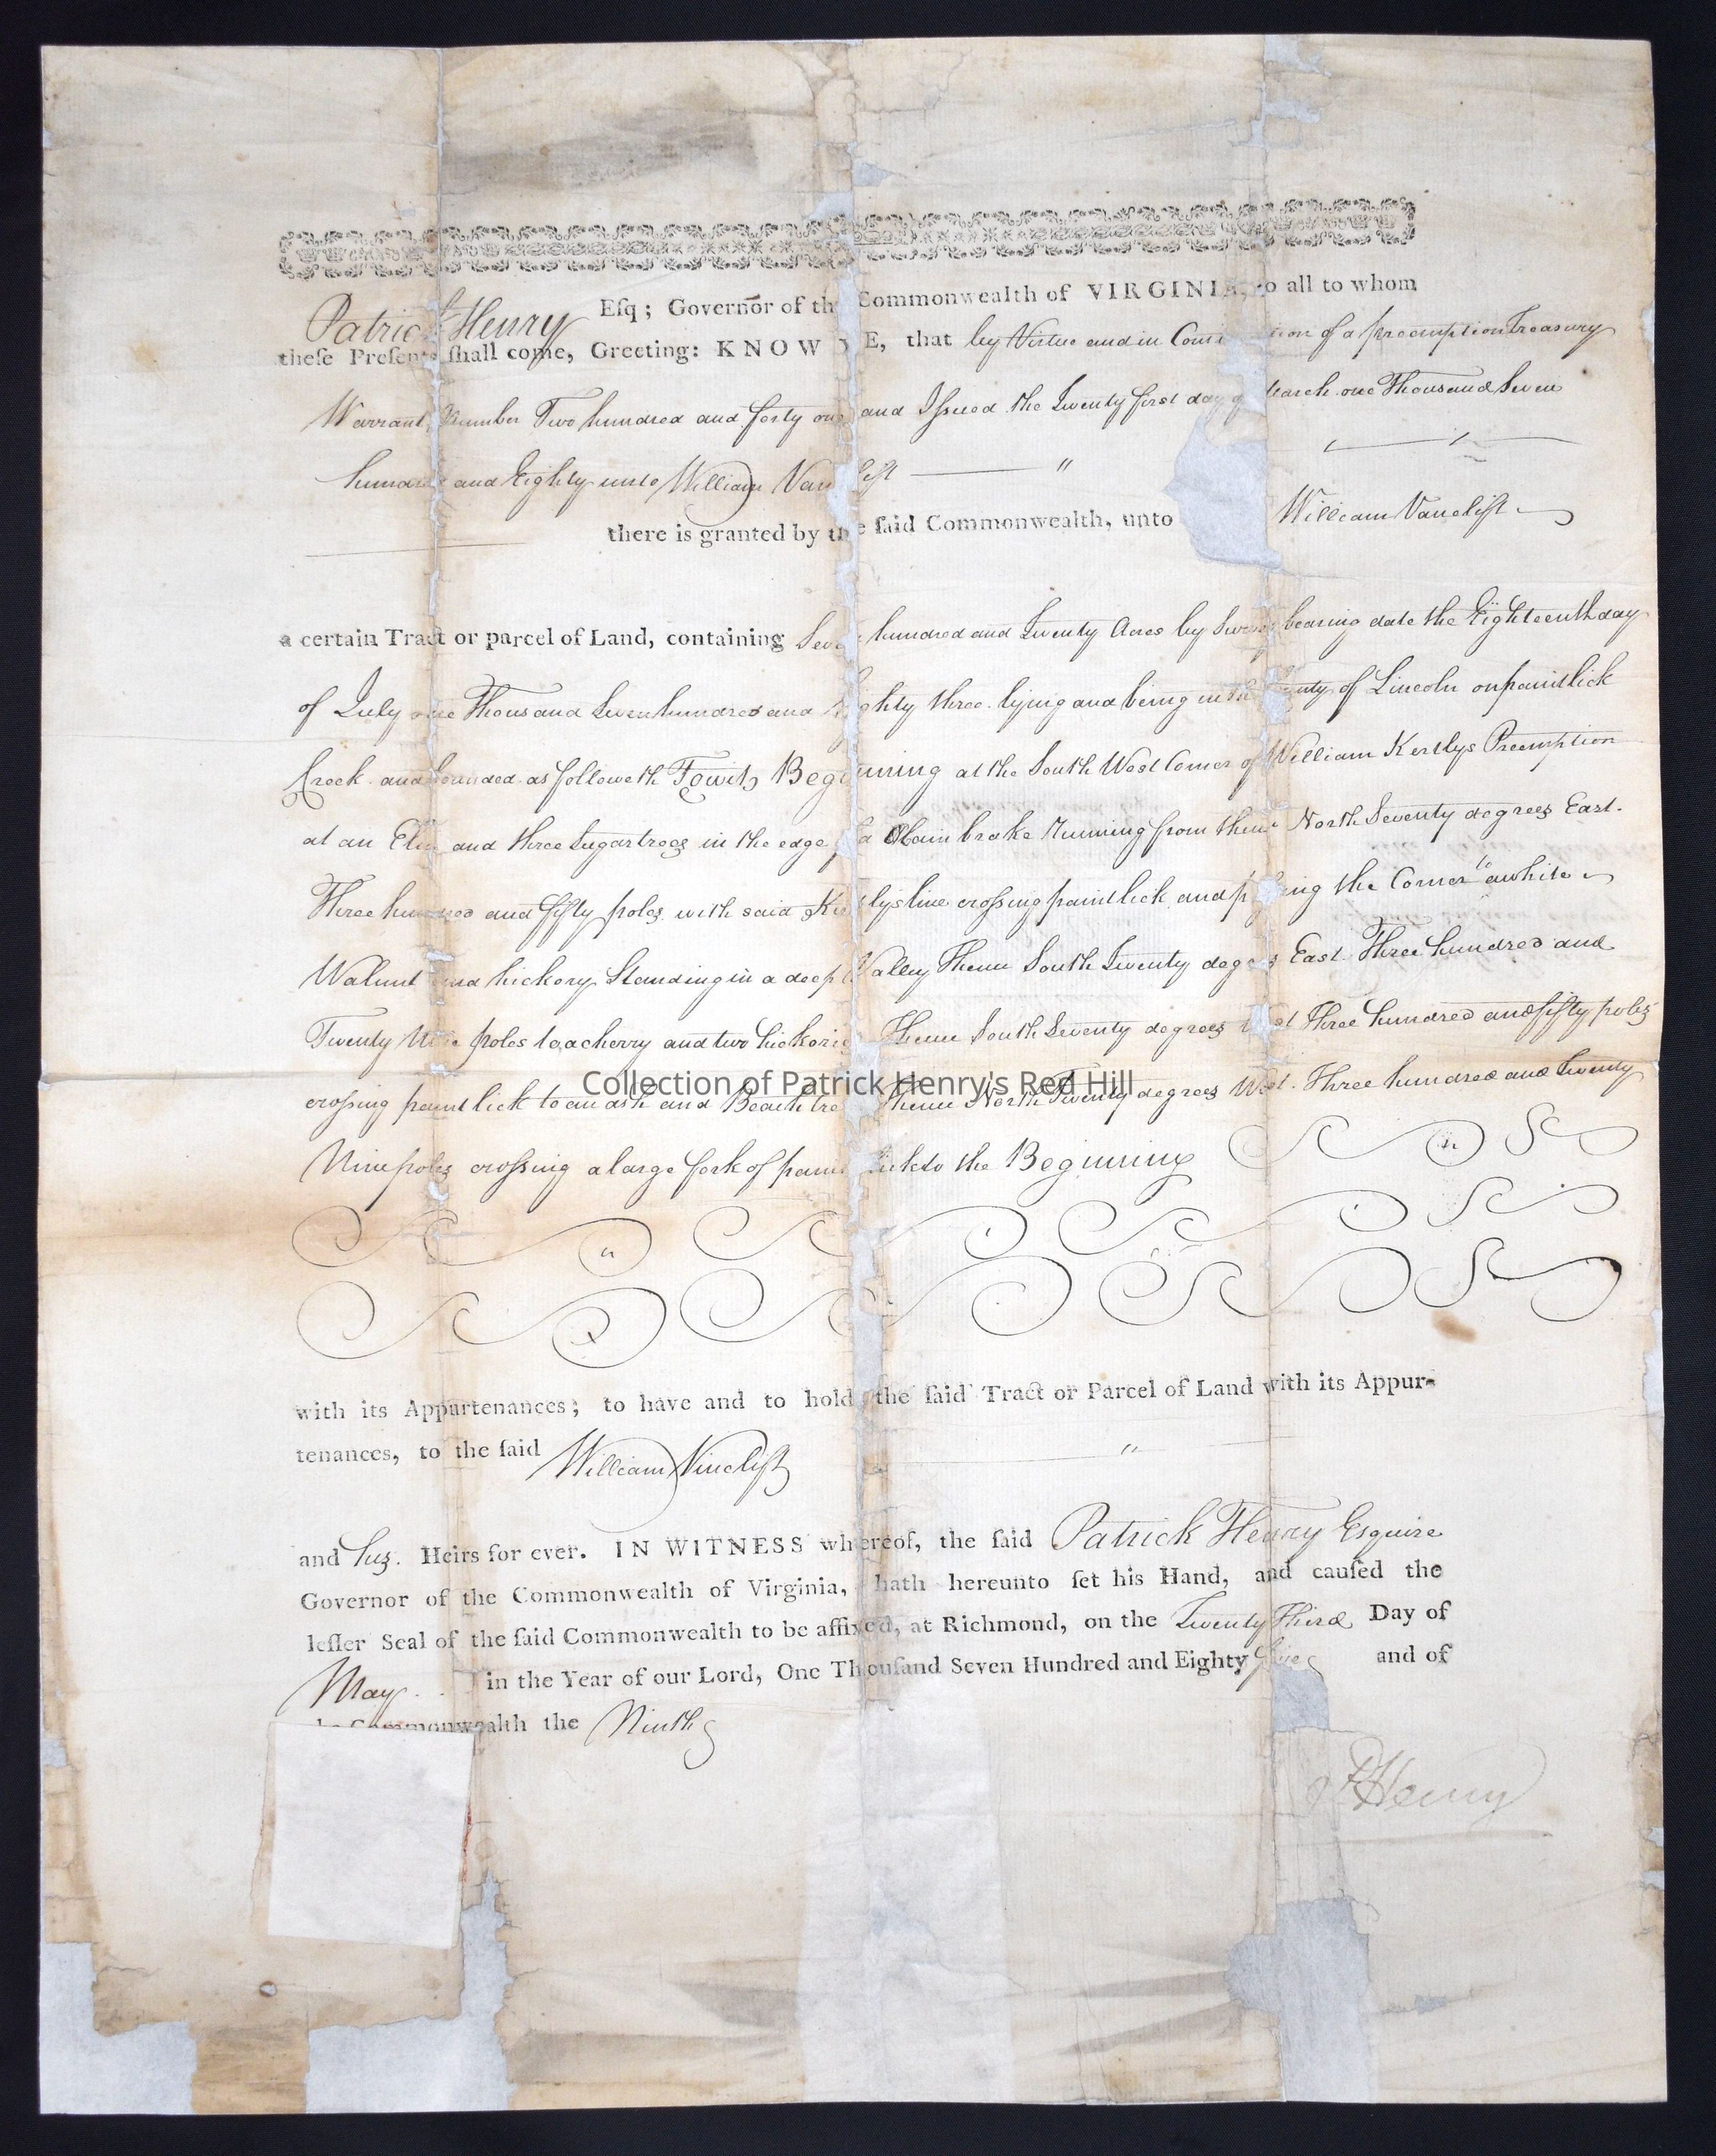 Patrick Henry Esq; Governor of the Commonwealth of VIRGINIA, to all to whom
these Presents shall come, Greeting: KNOW YE, that by Virtue and in Consi tion of a preemption Treasury
Warrant Number Two hundred and forty one and Issued the Twenty first day of March one Thousand Seven
hundred and Eighty unto William Van lift
there is granted by the said Commonwealth, unto William Vanclift
a certain Tract or parcel of Land, containing Seven hundred and Twenty Acres by Survey bearing date the Eighteenth day
of July one Thousand Seven hundred and Eighty three lying and being in the County of Lincoln on paintlick
Creek and bounded as followeth Towit, Beginning at the South West Corner of William Kertlys Preemption
at an Elm and three Sugartrees in the edge of a Cain brake Running from thence North Seventy degrees East
Three hundred and fifty poles with said Kertlys line crossing paintlick and p ing the Corner a white
Walnut and hickory Standing in a deep Valley Thence South Twenty degrees East Three hundred and
Twenty Nine poles to a cherry and two hickories Thence South Seventy degrees West Three hundred and fifty poles
crossing paintlick to an ash and Beach tree Thence North Twenty degrees West Three hundred and Twenty
Nine poles crossing a large fork of paint lick to the Beginning
with its Appurtenances; to have and to hold the said Tract or Parcel of Land with its Appur-
tenances, to the said William Vinclift
and his Heirs for ever. IN WITNESS whereof, the said Patrick Henry Esquire
Governor of the Commonwealth of Virginia, hath hereunto set his Hand, and caused the
lesser Seal of the said Commonwealth to be affixed, at Richmond, on the Twenty Third Day of
May in the Year of our Lord, One Thousand Seven Hundred and Eighty five and of
the Commonwealth the Ninth
P Henry
Collection of Patrick Henry's Red Hill